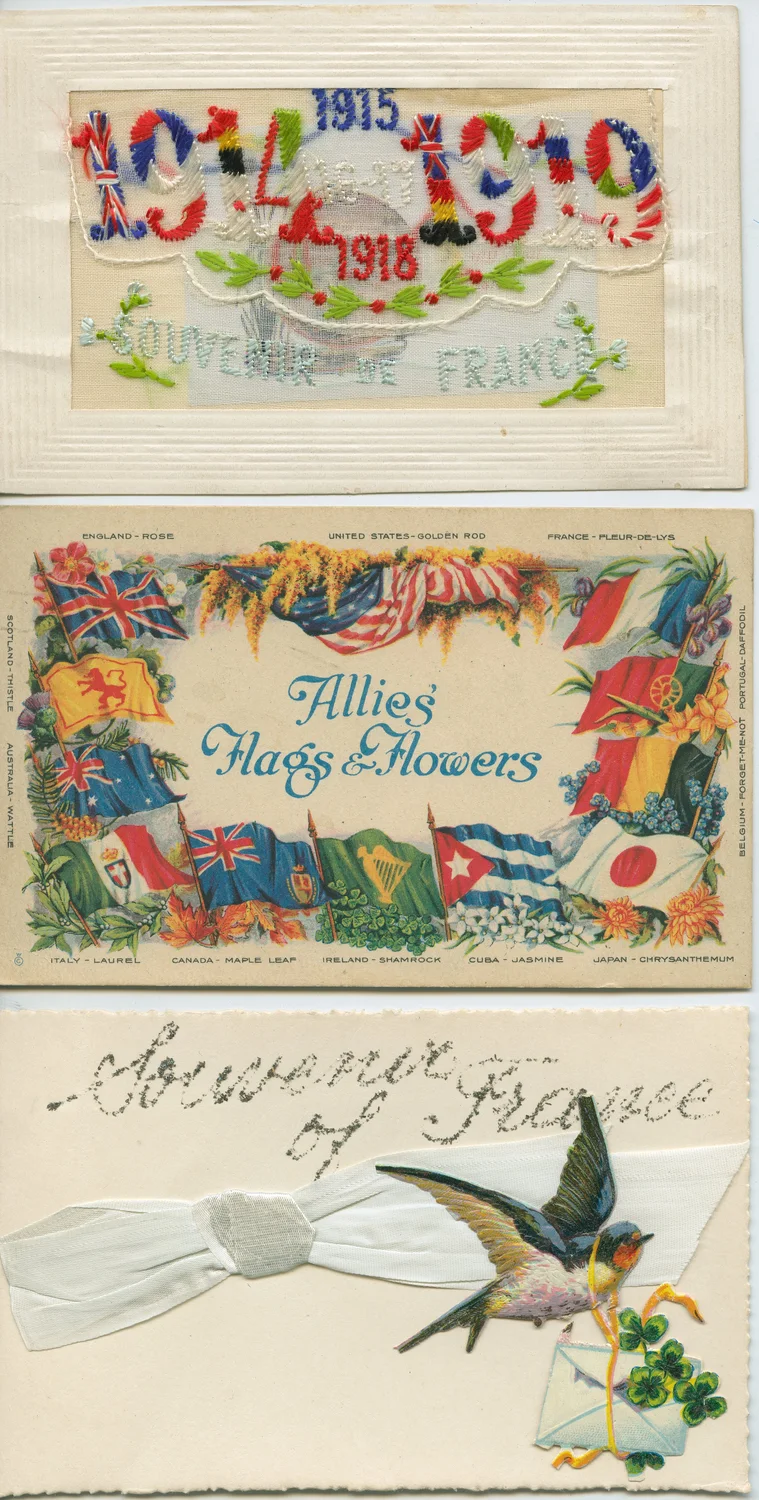 1915
1914 1919
16-17
1918
SOUVENIR DE FRANCE
ENGLAND - ROSE
UNITED STATES - GOLDEN ROD
FRANCE - FLEUR-DE-LYS
SCOTLAND - THISTLE
AUSTRALIA - WATTLE
Allies'
Flags & Flowers
PORTUGAL - DAFFODIL
BELGIUM - FORGET-ME-NOT
©
ITALY - LAUREL
CANADA - MAPLE LEAF
IRELAND - SHAMROCK
CUBA - JASMINE
JAPAN - CHRYSANTHEMUM
Souvenir
of France